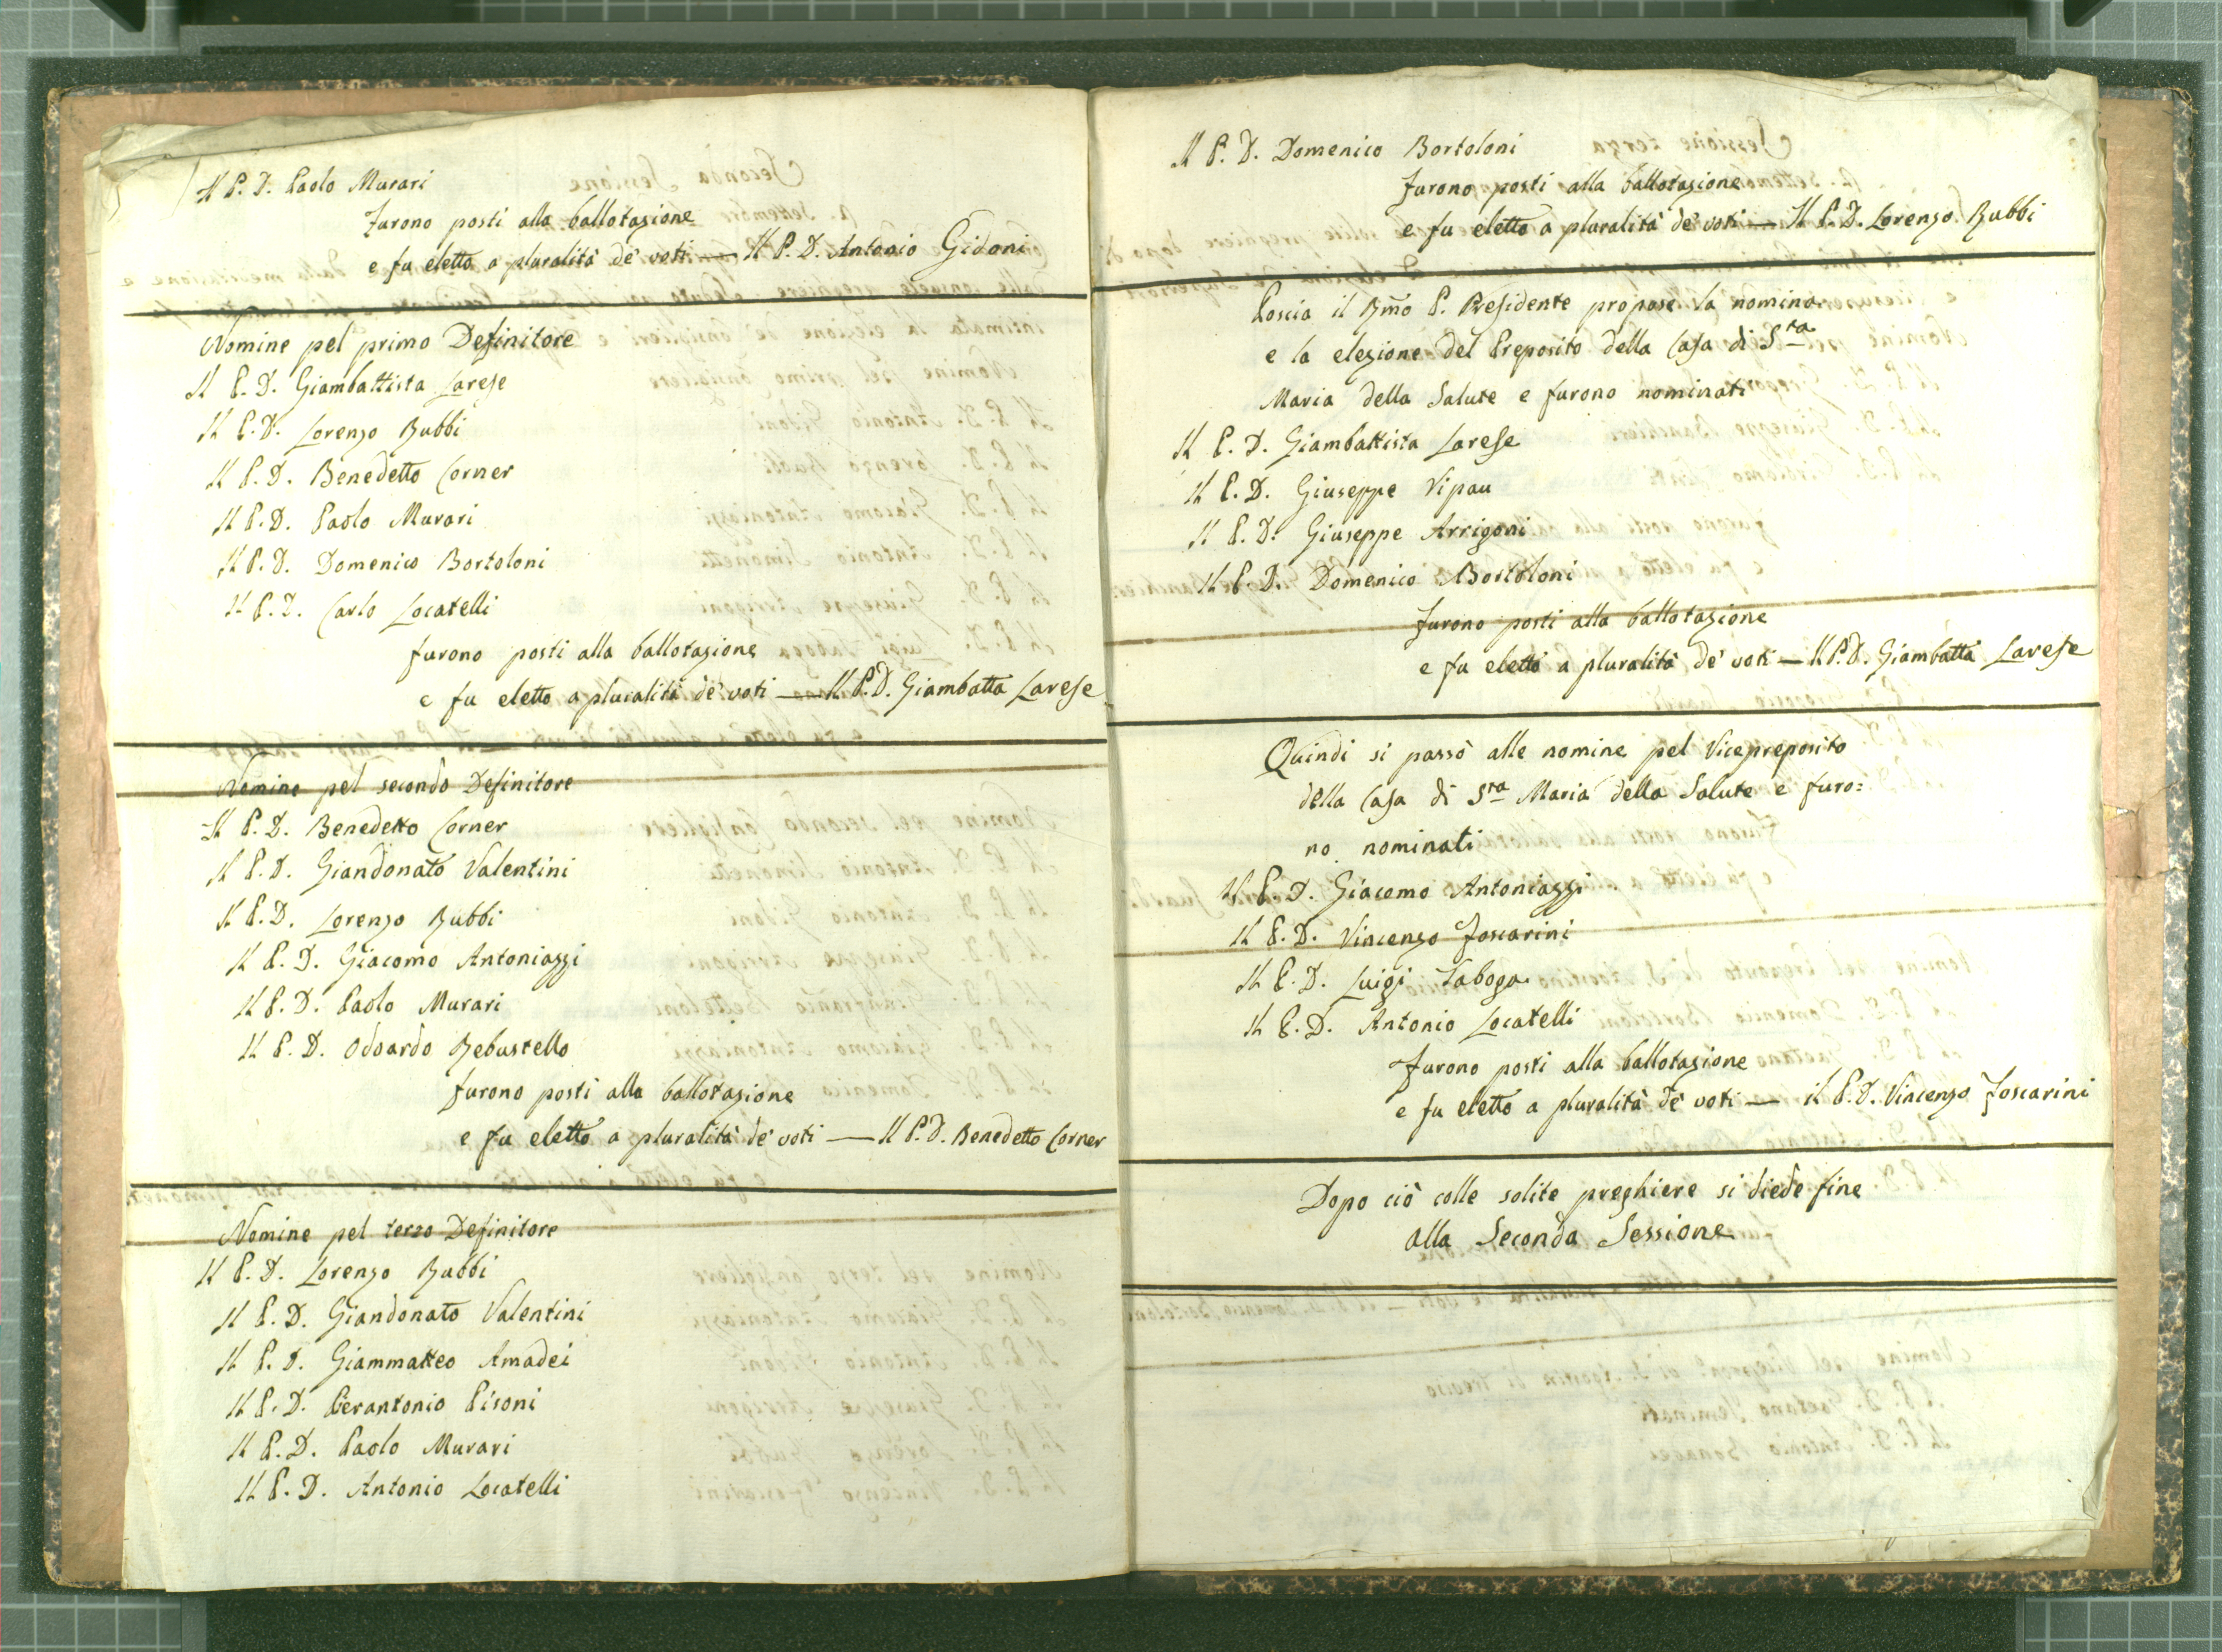 Il P. D. Paolo Murari
furono posti alla ballotazione
e fu eletto a pluralità de' voti — Il P. D. Antonio Gidoni
Nomine pel primo Definitore
Il P. D. Giambattista Larese
Il P. D. Lorenzo Rubbi
Il P. D. Benedetto Corner
Il P. D. Paolo Murari
Il P. D. Domenico Bortoloni
Il P. D. Carlo Locatelli
furono posti alla ballotazione
e fu eletto a pluralità de' voti — Il P. D. Giambatta Larese
Nomine pel secondo Definitore
Il P. D. Benedetto Corner
Il P. D. Giandonato Valentini
Il P. D. Lorenzo Rubbi
Il P. D. Giacomo Antoniazzi
Il P. D. Paolo Murari
Il P. D. Odoardo Rebustello
furono posti alla ballotazione
e fu eletto a pluralità de' voti — Il P. D. Benedetto Corner
Nomine pel terzo Definitore
Il P. D. Lorenzo Rubbi
Il P. D. Giandonato Valentini
Il P. D. Giammatteo Amadei
Il P. D. Pierantonio Pisoni
Il P. D. Paolo Murari
Il P. D. Antonio Locatelli
Il P. D. Domenico Bortoloni
furono posti alla ballotazione
e fu eletto a pluralità de' voti — Il P. D. Lorenzo Rubbi
Poscia il Rmo P. Presidente propose la nomina
e la elezione del Preposito della Casa di Sta
Maria della Salute e furono nominati
Il P. D. Giambattista Larese
Il P. D. Giuseppe Vipau
Il P. D. Giuseppe Arrigoni
Il P. D. Domenico Bortoloni
furono posti alla ballotazione
e fu eletto a pluralità de' voti — Il P. D. Giambatta Larese
Quindi si passò alle nomine pel Vicepreposito
della Casa di Sta Maria della Salute e furo=
no nominati
Il P. D. Giacomo Antoniazzi
Il P. D. Vincenzo Foscarini
Il P. D. Luigi Taboga
Il P. D. Antonio Locatelli
furono posti alla ballotazione
e fu eletto a pluralità de' voti — il P. D. Vincenzo Foscarini
Dopo ciò colle solite preghiere si diede fine
alla Seconda Sessione